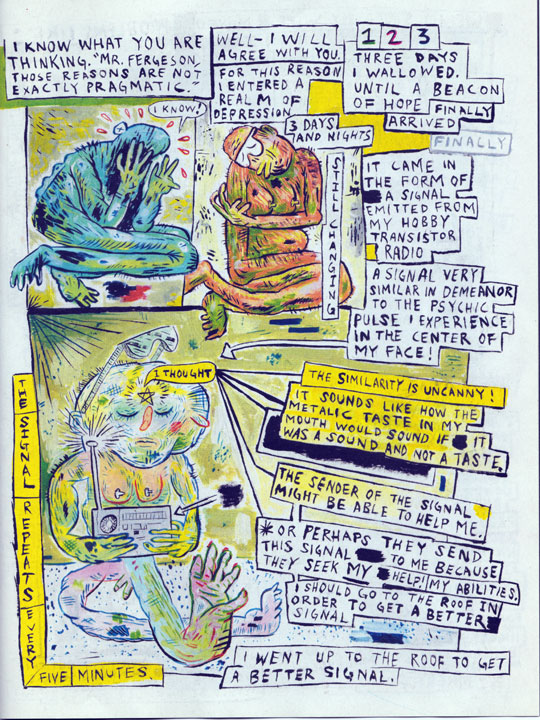 I KNOW WHAT YOU ARE
THINKING. "MR. FERGESON,
THOSE REASONS ARE NOT
EXACTLY PRAGMATIC."
I KNOW!
WELL- I WILL
AGREE WITH YOU.
FOR THIS REASON
I ENTERED A
REALM OF
DEPRESSION
3 DAYS
AND NIGHTS
STILL CHANGING
1 2 3
THREE DAYS
I WALLOWED.
UNTIL A BEACON
OF HOPE FINALLY
ARRIVED
FINALLY
IT CAME IN
THE FORM OF
A SIGNAL
EMITTED FROM
MY HOBBY
TRANSISTOR
RADIO
A SIGNAL VERY
SIMILAR IN DEMEANOR
TO THE PSYCHIC
PULSE I EXPERIENCE
IN THE CENTER OF
MY FACE!
I THOUGHT
THE SIMILARITY IS UNCANNY!
IT SOUNDS LIKE HOW THE
METALIC TASTE IN MY
MOUTH WOULD SOUND IF IT
WAS A SOUND AND NOT A TASTE.
THE SENDER OF THE SIGNAL
MIGHT BE ABLE TO HELP ME.
*OR PERHAPS THEY SEND
THIS SIGNAL TO ME BECAUSE
THEY SEEK MY HELP! MY ABILITIES.
I SHOULD GO TO THE ROOF IN
ORDER TO GET A BETTER
SIGNAL
THE SIGNAL REPEATS EVERY
FIVE MINUTES.
I WENT UP TO THE ROOF TO GET
A BETTER SIGNAL.